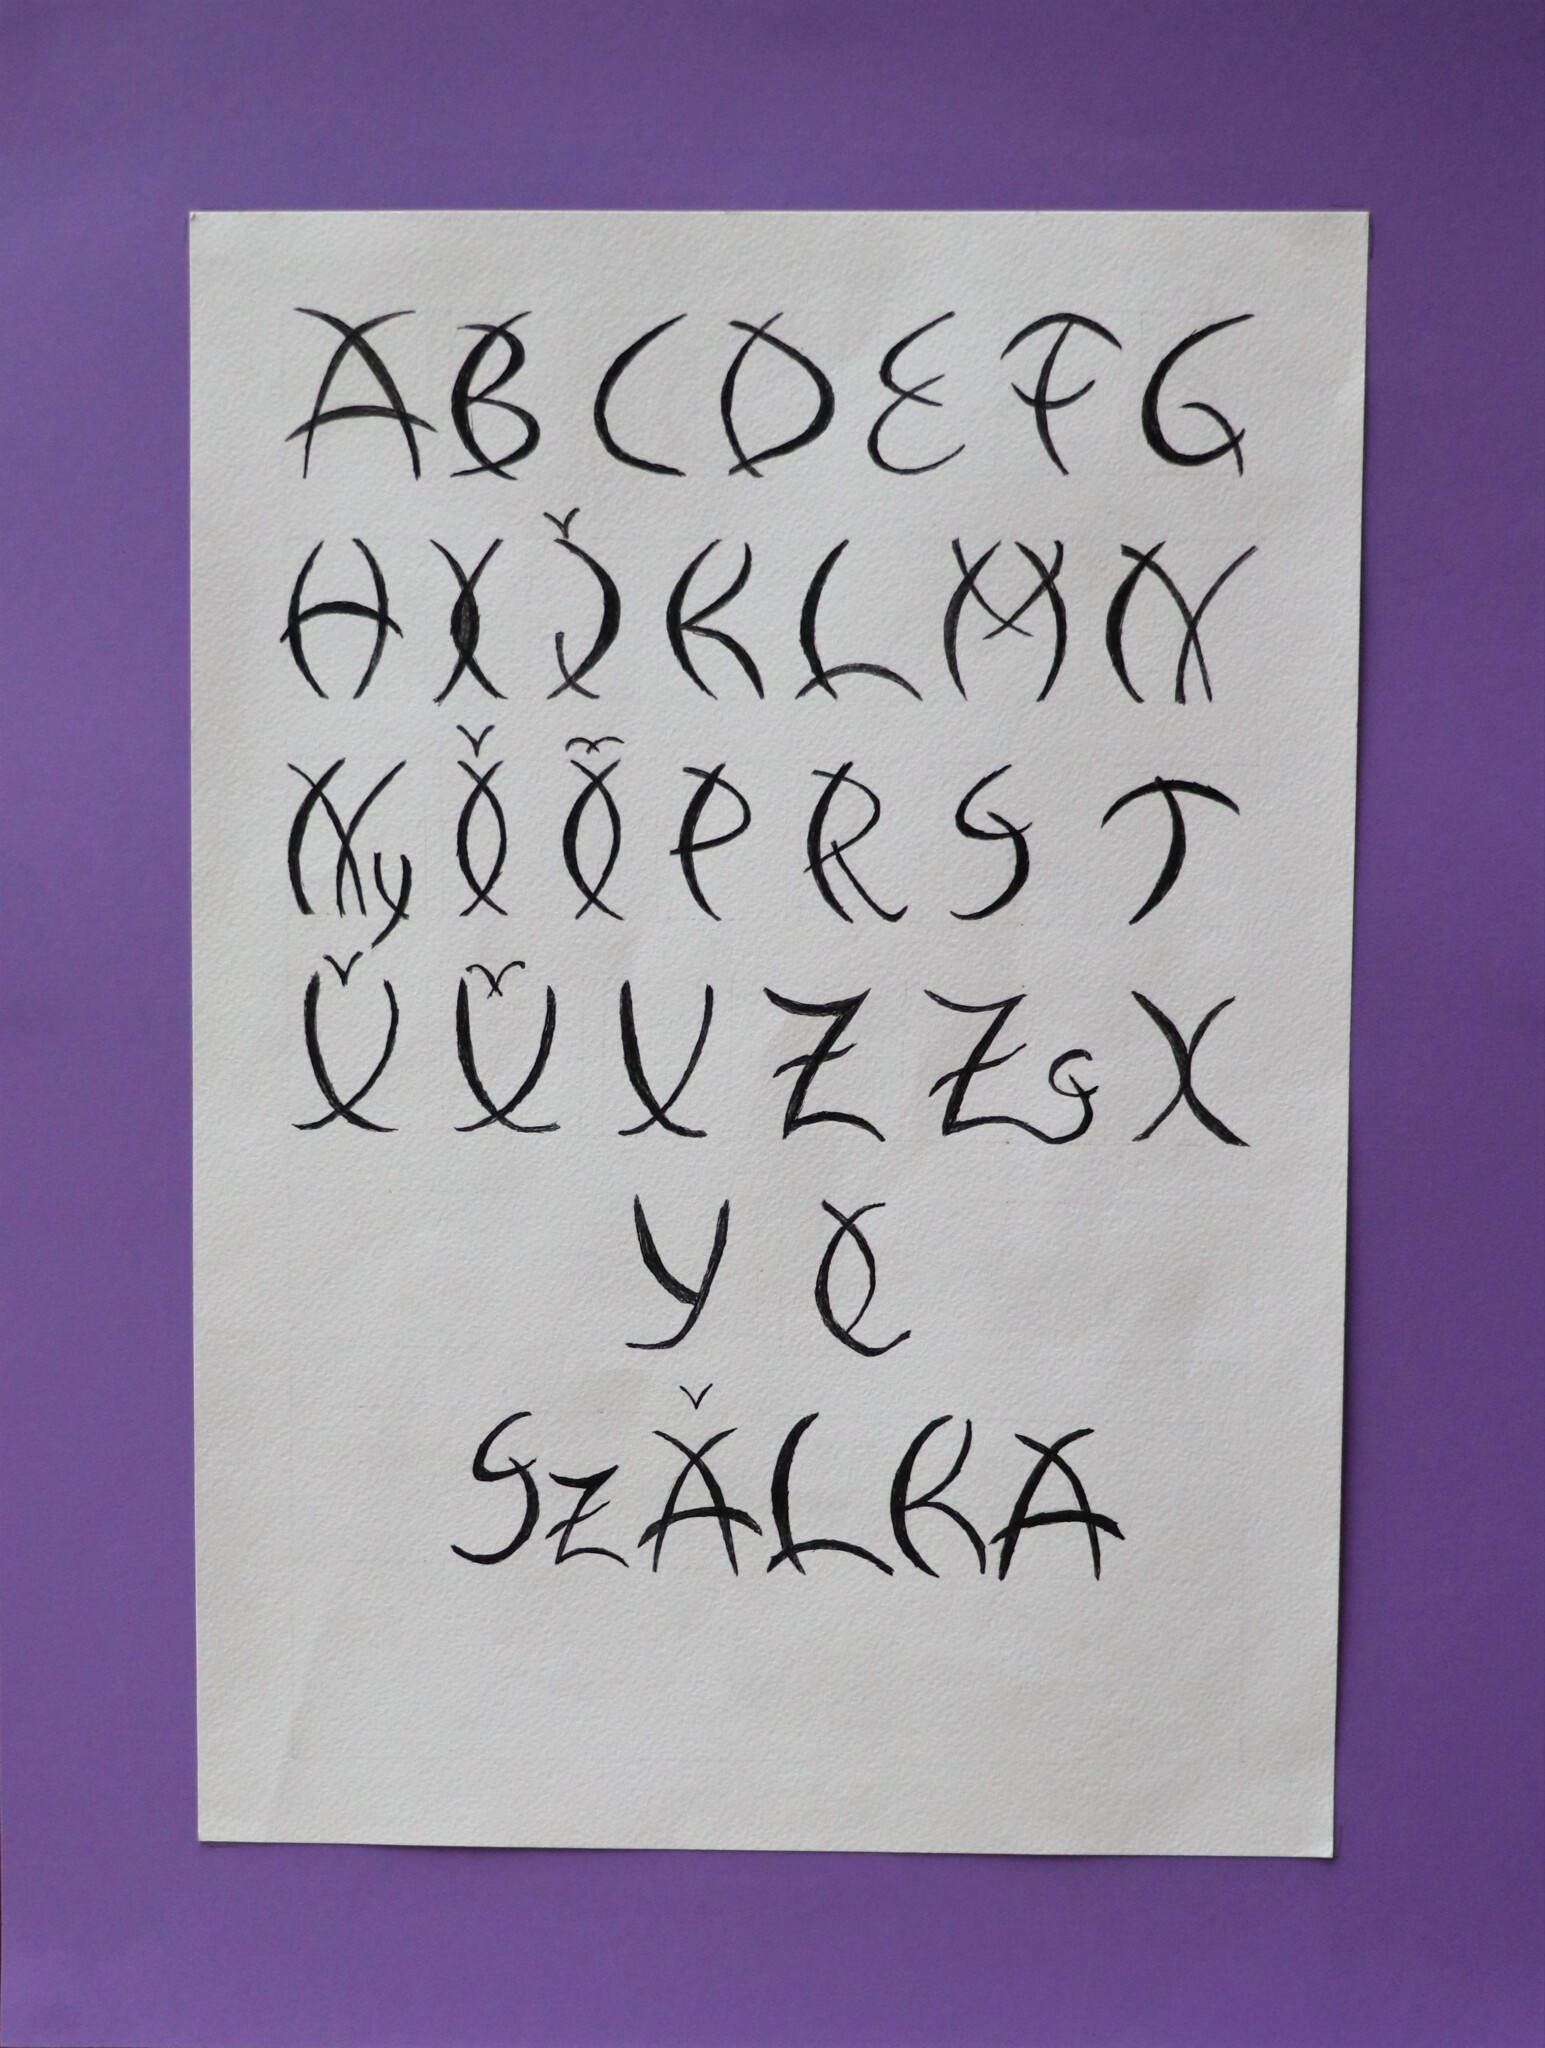 A B C D E F G
H I J K L M N
Ny Ó Ö P R S T
Ú Ü V Z Zs X
Y Q
SzÁLKA